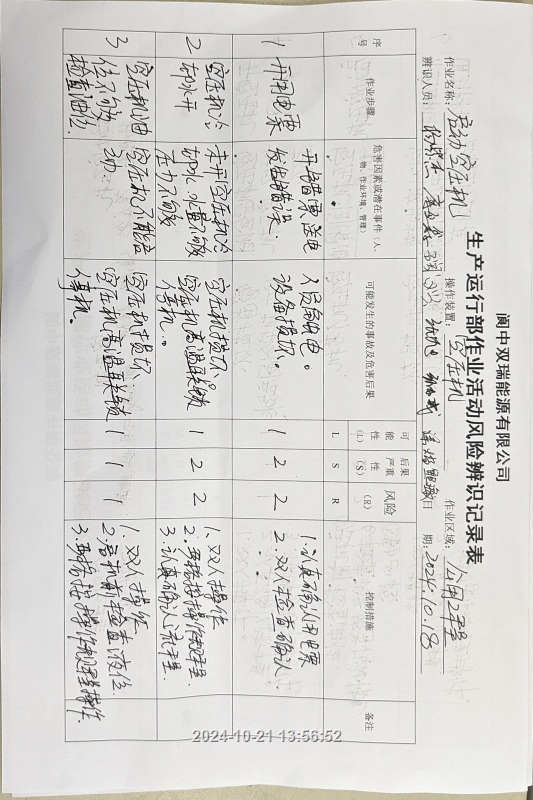 阆中双瑞能源有限公司
生产运行部作业活动风险辨识记录表
作业名称：启动空压机 操作装置：空压机 作业区域：公用工程
辨识人员： 日 期：2024.10.18
序号 作业步骤 危害因素或潜在事件（人、物、作业环境、管理） 可能发生的事故及危害后果 可能性（L） 后果严重性（S） 风险（R） 控制措施 备注
L S R
1 开电票 开错票，送电发生错误. 人员触电。设备损坏。 1 2 2 1.认真确认用电票
2.双人检查确认.
2 空压机冷却水开 未开空压机冷却水，水量不够压力不够 空压机损坏
空压机高温联锁停机。 1 2 2 1.双人操作
2.严格按操作规程.
3.认真确认流程.
3 空压机油位不够
检查油位. 空压机不能启动. 空压机损坏.
空压机高温联锁停机。 1 1 1 1.双人操作
2.启机前检查液位.
3.严格按操作规程操作.
2024-10-21 13:56:52